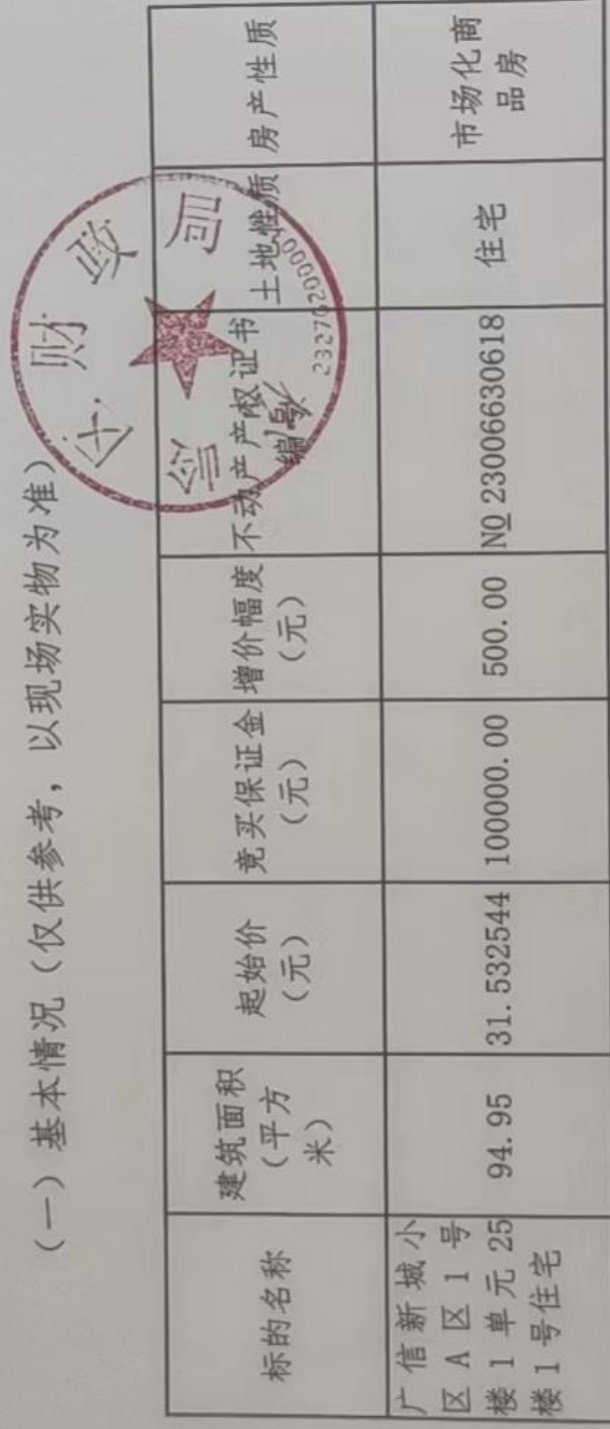 (一)基本情况(仅供参考，以现场实物为准)
标的名称
建筑面积
(平方
米)
起始价
(元)
竞买保证金
(元)
增价幅度
(元)
不动产产权证书
编号
土地性质
房产性质
广信新城小
区A区1号
楼1单元25
楼1号住宅
94.95
31.532544
100000.00
500.00
NO 23006630618
住宅
市场化商
品房
财政局